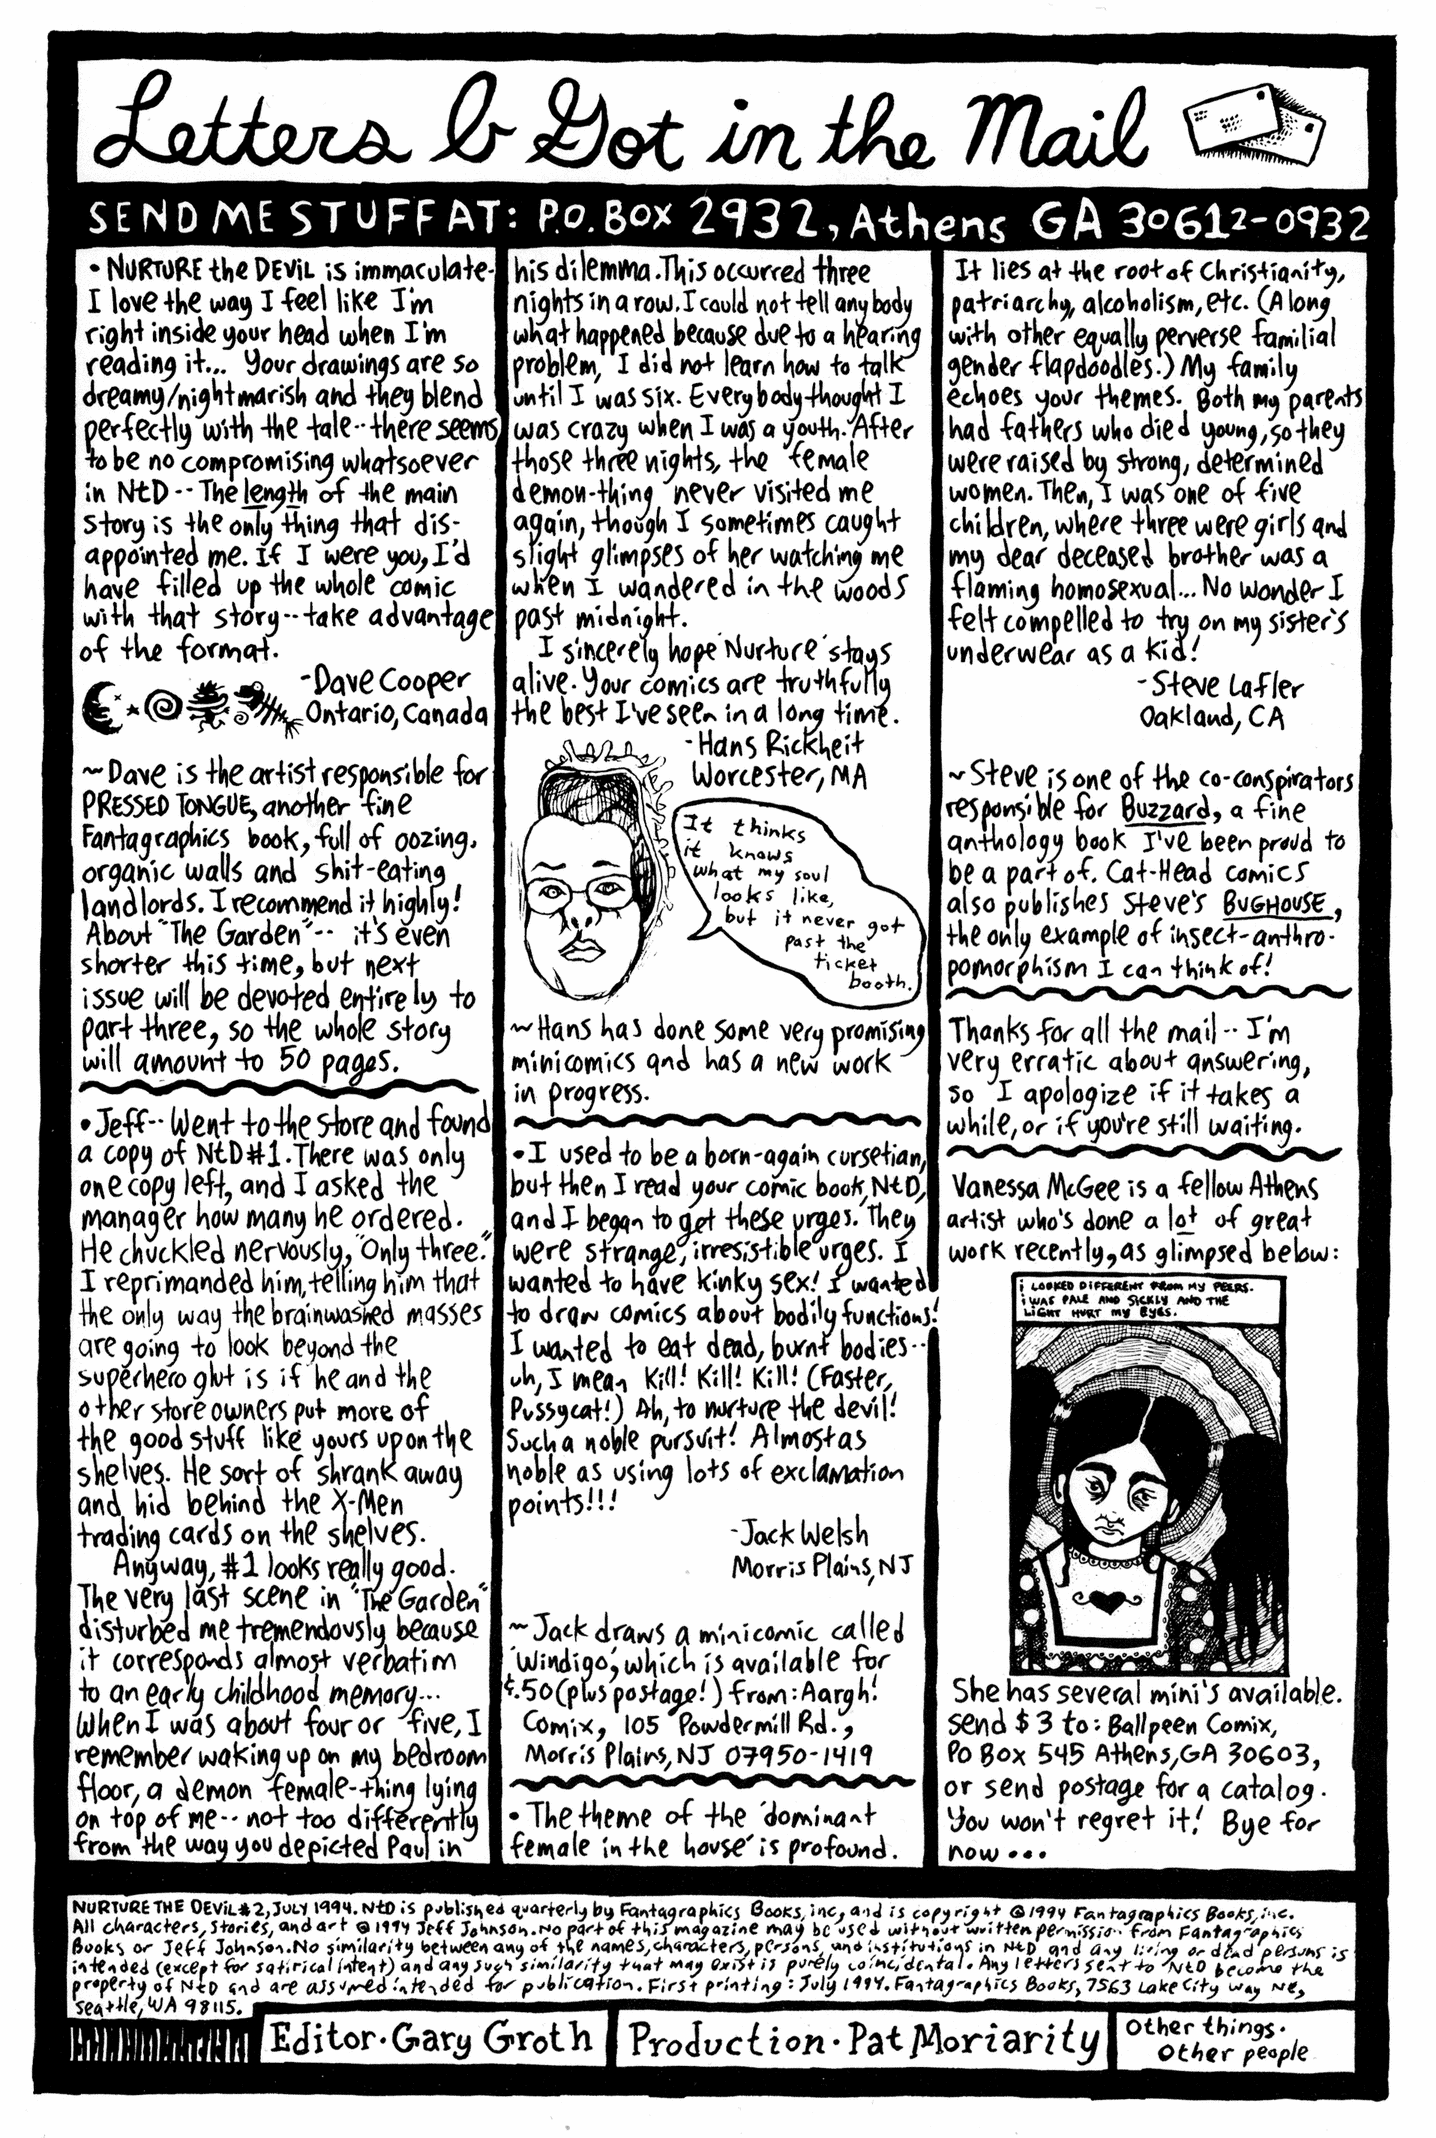 Letters I Got in the Mail
SEND ME STUFF AT: P.O. BOX 2932, Athens GA 30612-0932
• NURTURE the DEVIL is immaculate-
I love the way I feel like I'm
right inside your head when I'm
reading it... Your drawings are so
dreamy/nightmarish and they blend
perfectly with the tale--there seems
to be no compromising whatsoever
in NtD -- The length of the main
story is the only thing that dis-
appointed me. If I were you, I'd
have filled up the whole comic
with that story--take advantage
of the format.
-Dave Cooper
Ontario, Canada
~Dave is the artist responsible for
PRESSED TONGUE, another fine
Fantagraphics book, full of oozing,
organic walls and shit-eating
landlords. I recommend it highly!
About "The Garden"-- it's even
shorter this time, but next
issue will be devoted entirely to
part three, so the whole story
will amount to 50 pages.
•Jeff-- Went to the store and found
a copy of NtD#1. There was only
one copy left, and I asked the
manager how many he ordered.
He chuckled nervously, "Only three."
I reprimanded him, telling him that
the only way the brainwashed masses
are going to look beyond the
superhero glut is if he and the
other store owners put more of
the good stuff like yours upon the
shelves. He sort of shrank away
and hid behind the X-Men
trading cards on the shelves.
Anyway, #1 looks really good.
The very last scene in "The Garden"
disturbed me tremendously because
it corresponds almost verbatim
to an early childhood memory...
When I was about four or five, I
remember waking up on my bedroom
floor, a demon female-thing lying
on top of me-- not too differently
from the way you depicted Paul in
his dilemma. This occurred three
nights in a row. I could not tell anybody
what happened because due to a hearing
problem, I did not learn how to talk
until I was six. Everybody thought I
was crazy when I was a youth. After
those three nights, the female
demon-thing never visited me
again, though I sometimes caught
slight glimpses of her watching me
when I wandered in the woods
past midnight.
I sincerely hope 'Nurture' stays
alive. Your comics are truthfully
the best I've seen in a long time.
-Hans Rickheit
Worcester, MA
It thinks
it knows
what my soul
looks like,
but it never got
past the
ticket
booth.
~Hans has done some very promising
minicomics and has a new work
in progress.
•I used to be a born-again cursetian,
but then I read your comic book, NtD,
and I began to get these urges. They
were strange, irresistible urges. I
wanted to have kinky sex! I wanted
to draw comics about bodily functions!
I wanted to eat dead, burnt bodies--
uh, I mean Kill! Kill! Kill! (Faster,
Pussycat!) Ah, to nurture the devil!
Such a noble pursuit! Almost as
noble as using lots of exclamation
points!!!
-Jack Welsh
Morris Plains, NJ
~Jack draws a minicomic called
'Windigo', which is available for
$.50 (plus postage!) from: Aargh!
Comix, 105 Powdermill Rd.,
Morris Plains, NJ 07950-1419
• The theme of the 'dominant
female in the house' is profound.
It lies at the root of Christianity,
patriarchy, alcoholism, etc. (Along
with other equally perverse familial
gender flapdoodles.) My family
echoes your themes. Both my parents
had fathers who died young, so they
were raised by strong, determined
women. Then, I was one of five
children, where three were girls and
my dear deceased brother was a
flaming homosexual... No wonder I
felt compelled to try on my sister's
underwear as a kid!
-Steve Lafler
Oakland, CA
~Steve is one of the co-conspirators
responsible for Buzzard, a fine
anthology book I've been proud to
be a part of. Cat-Head comics
also publishes Steve's BUGHOUSE,
the only example of insect-anthro-
pomorphism I can think of!
Thanks for all the mail-- I'm
very erratic about answering,
so I apologize if it takes a
while, or if you're still waiting.
Vanessa McGee is a fellow Athens
artist who's done a lot of great
work recently, as glimpsed below:
I LOOKED DIFFERENT FROM MY PEERS.
I WAS PALE AND SICKLY AND THE
LIGHT HURT MY EYES.
She has several mini's available.
Send $3 to: Ballpeen Comix,
PO Box 545 Athens, GA 30603,
or send postage for a catalog.
You won't regret it! Bye for
now...
NURTURE THE DEVIL #2, JULY 1994. NtD is published quarterly by Fantagraphics Books, inc, and is copyright ©1994 Fantagraphics Books, inc.
All characters, stories, and art ©1994 Jeff Johnson. No part of this magazine may be used without written permission from Fantagraphics
Books or Jeff Johnson. No similarity between any of the names, characters, persons, and institutions in NtD and any living or dead persons is
intended (except for satirical intent) and any such similarity that may exist is purely coincidental. Any letters sent to NtD become the
property of NtD and are assumed intended for publication. First printing: July 1994. Fantagraphics Books, 7563 Lake City Way NE,
Seattle, WA 98115.
Editor·Gary Groth
Production·Pat Moriarity
Other things·
Other people